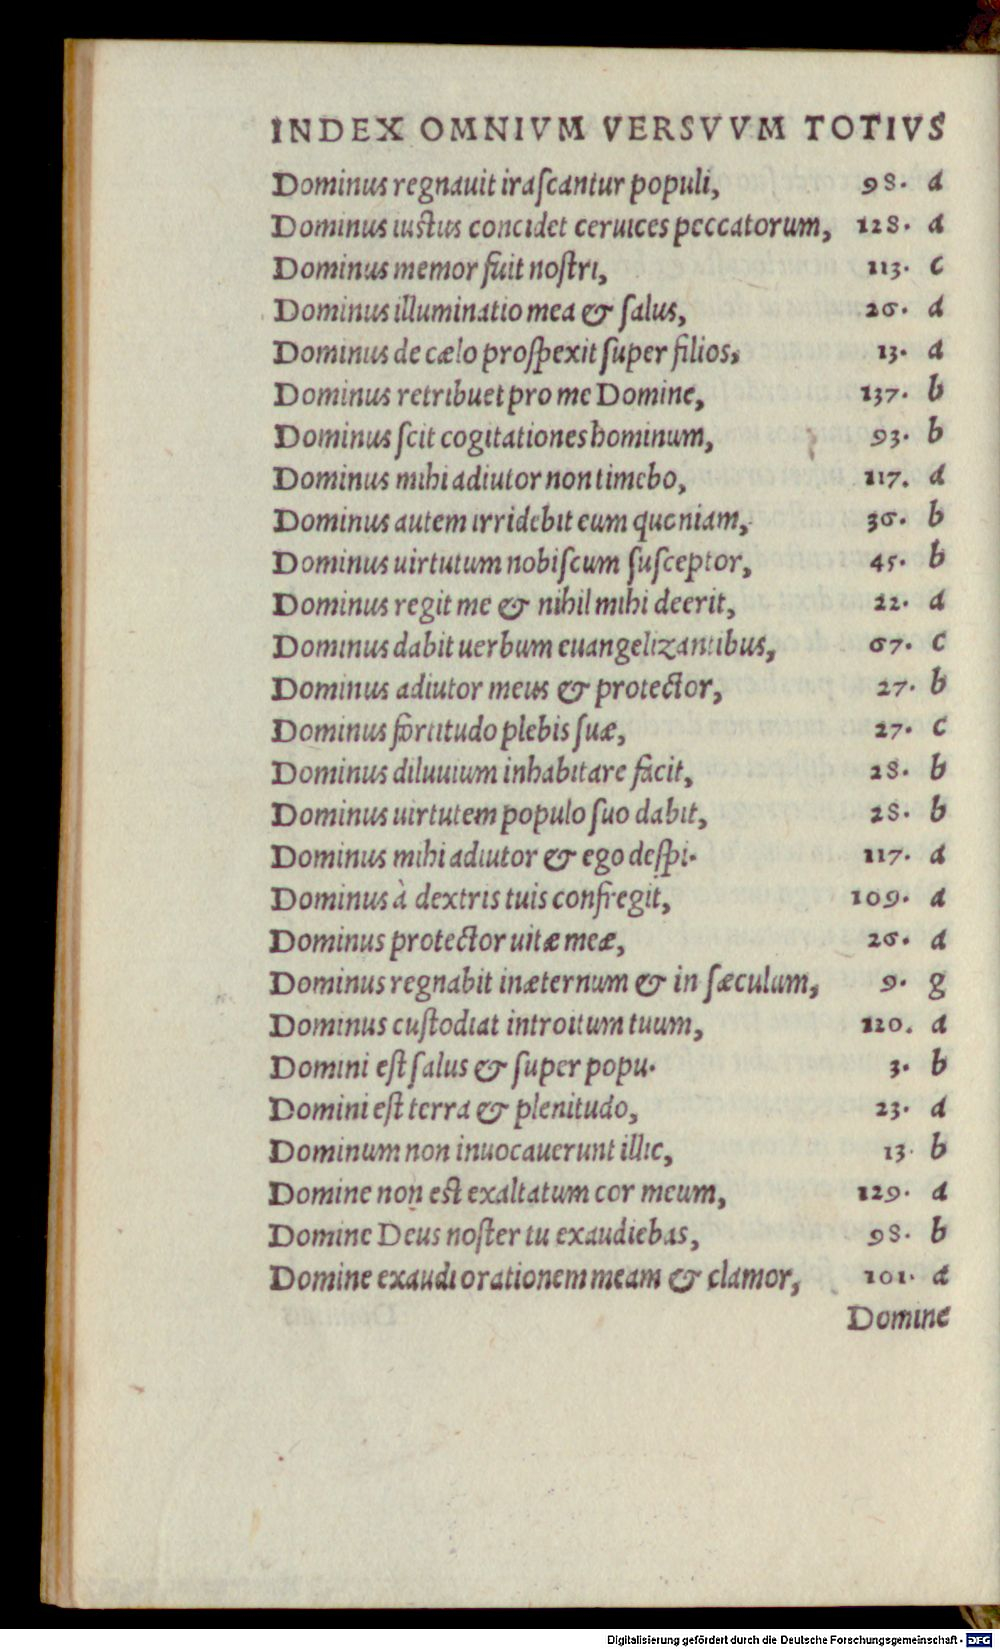 INDEX OMNIVM VERSVVM TOTIVS
Dominus regnauit iraſcantur populi, 98. a
Dominus iustus concidet ceruices peccatorum, 128. a
Dominus memor fuit noſtri, 113. c
Dominus illuminatio mea & ſalus, 26. a
Dominus de cælo proſpexit ſuper filios, 13. a
Dominus retribuet pro me Domine, 137. b
Dominus ſcit cogitationes hominum, 93. b
Dominus mihi adiutor non timebo, 117. a
Dominus autem irridebit eum quoniam, 36. b
Dominus uirtutum nobiſcum ſuſceptor, 45. b
Dominus regit me & nihil mihi deerit, 22. a
Dominus dabit uerbum euangelizantibus, 67. c
Dominus adiutor meus & protector, 27. b
Dominus fortitudo plebis ſuæ, 27. c
Dominus diluuium inhabitare facit, 28. b
Dominus uirtutem populo ſuo dabit, 28. b
Dominus mihi adiutor & ego deſpi. 117. a
Dominus à dextris tuis confregit, 109. a
Dominus protector uitæ meæ, 26. a
Dominus regnabit inæternum & in ſæculum, 9. g
Dominus cuſtodiat introitum tuum, 120. a
Domini eſt ſalus & ſuper popu. 3. b
Domini eſt terra & plenitudo, 23. a
Dominum non inuocauerunt illic, 13. b
Domine non est exaltatum cor meum, 129. a
Domine Deus noſter tu exaudiebas, 98. b
Domine exaudi orationem meam & clamor, 101. a
Domine
Digitalisierung gefördert durch die Deutsche Forschungsgemeinschaft - DFG